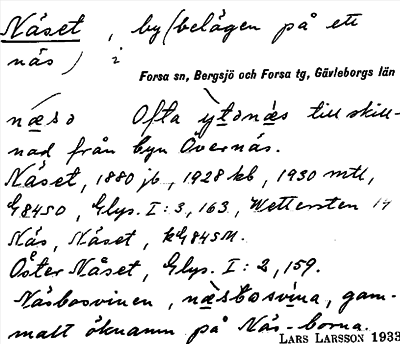 Näset, by (belägen på ett
näs) i
Forsa sn, Bergsjö och Forsa tg, Gävleborgs län
næsə Ofta ỳtənæs till skill-
nad från byn Övernäs.
Näset, 1880 jb, 1928 kb, 1930 mtl,
G84SO, Glys. I: 3, 163, Wettersten 14
Näs, Näset, kG84SM.
Öster Näset, Glys. I: 2, 159.
Näsbosvinen, næsbosvina, gam-
malt öknamn på Näs-borna.
LARS LARSSON 1933